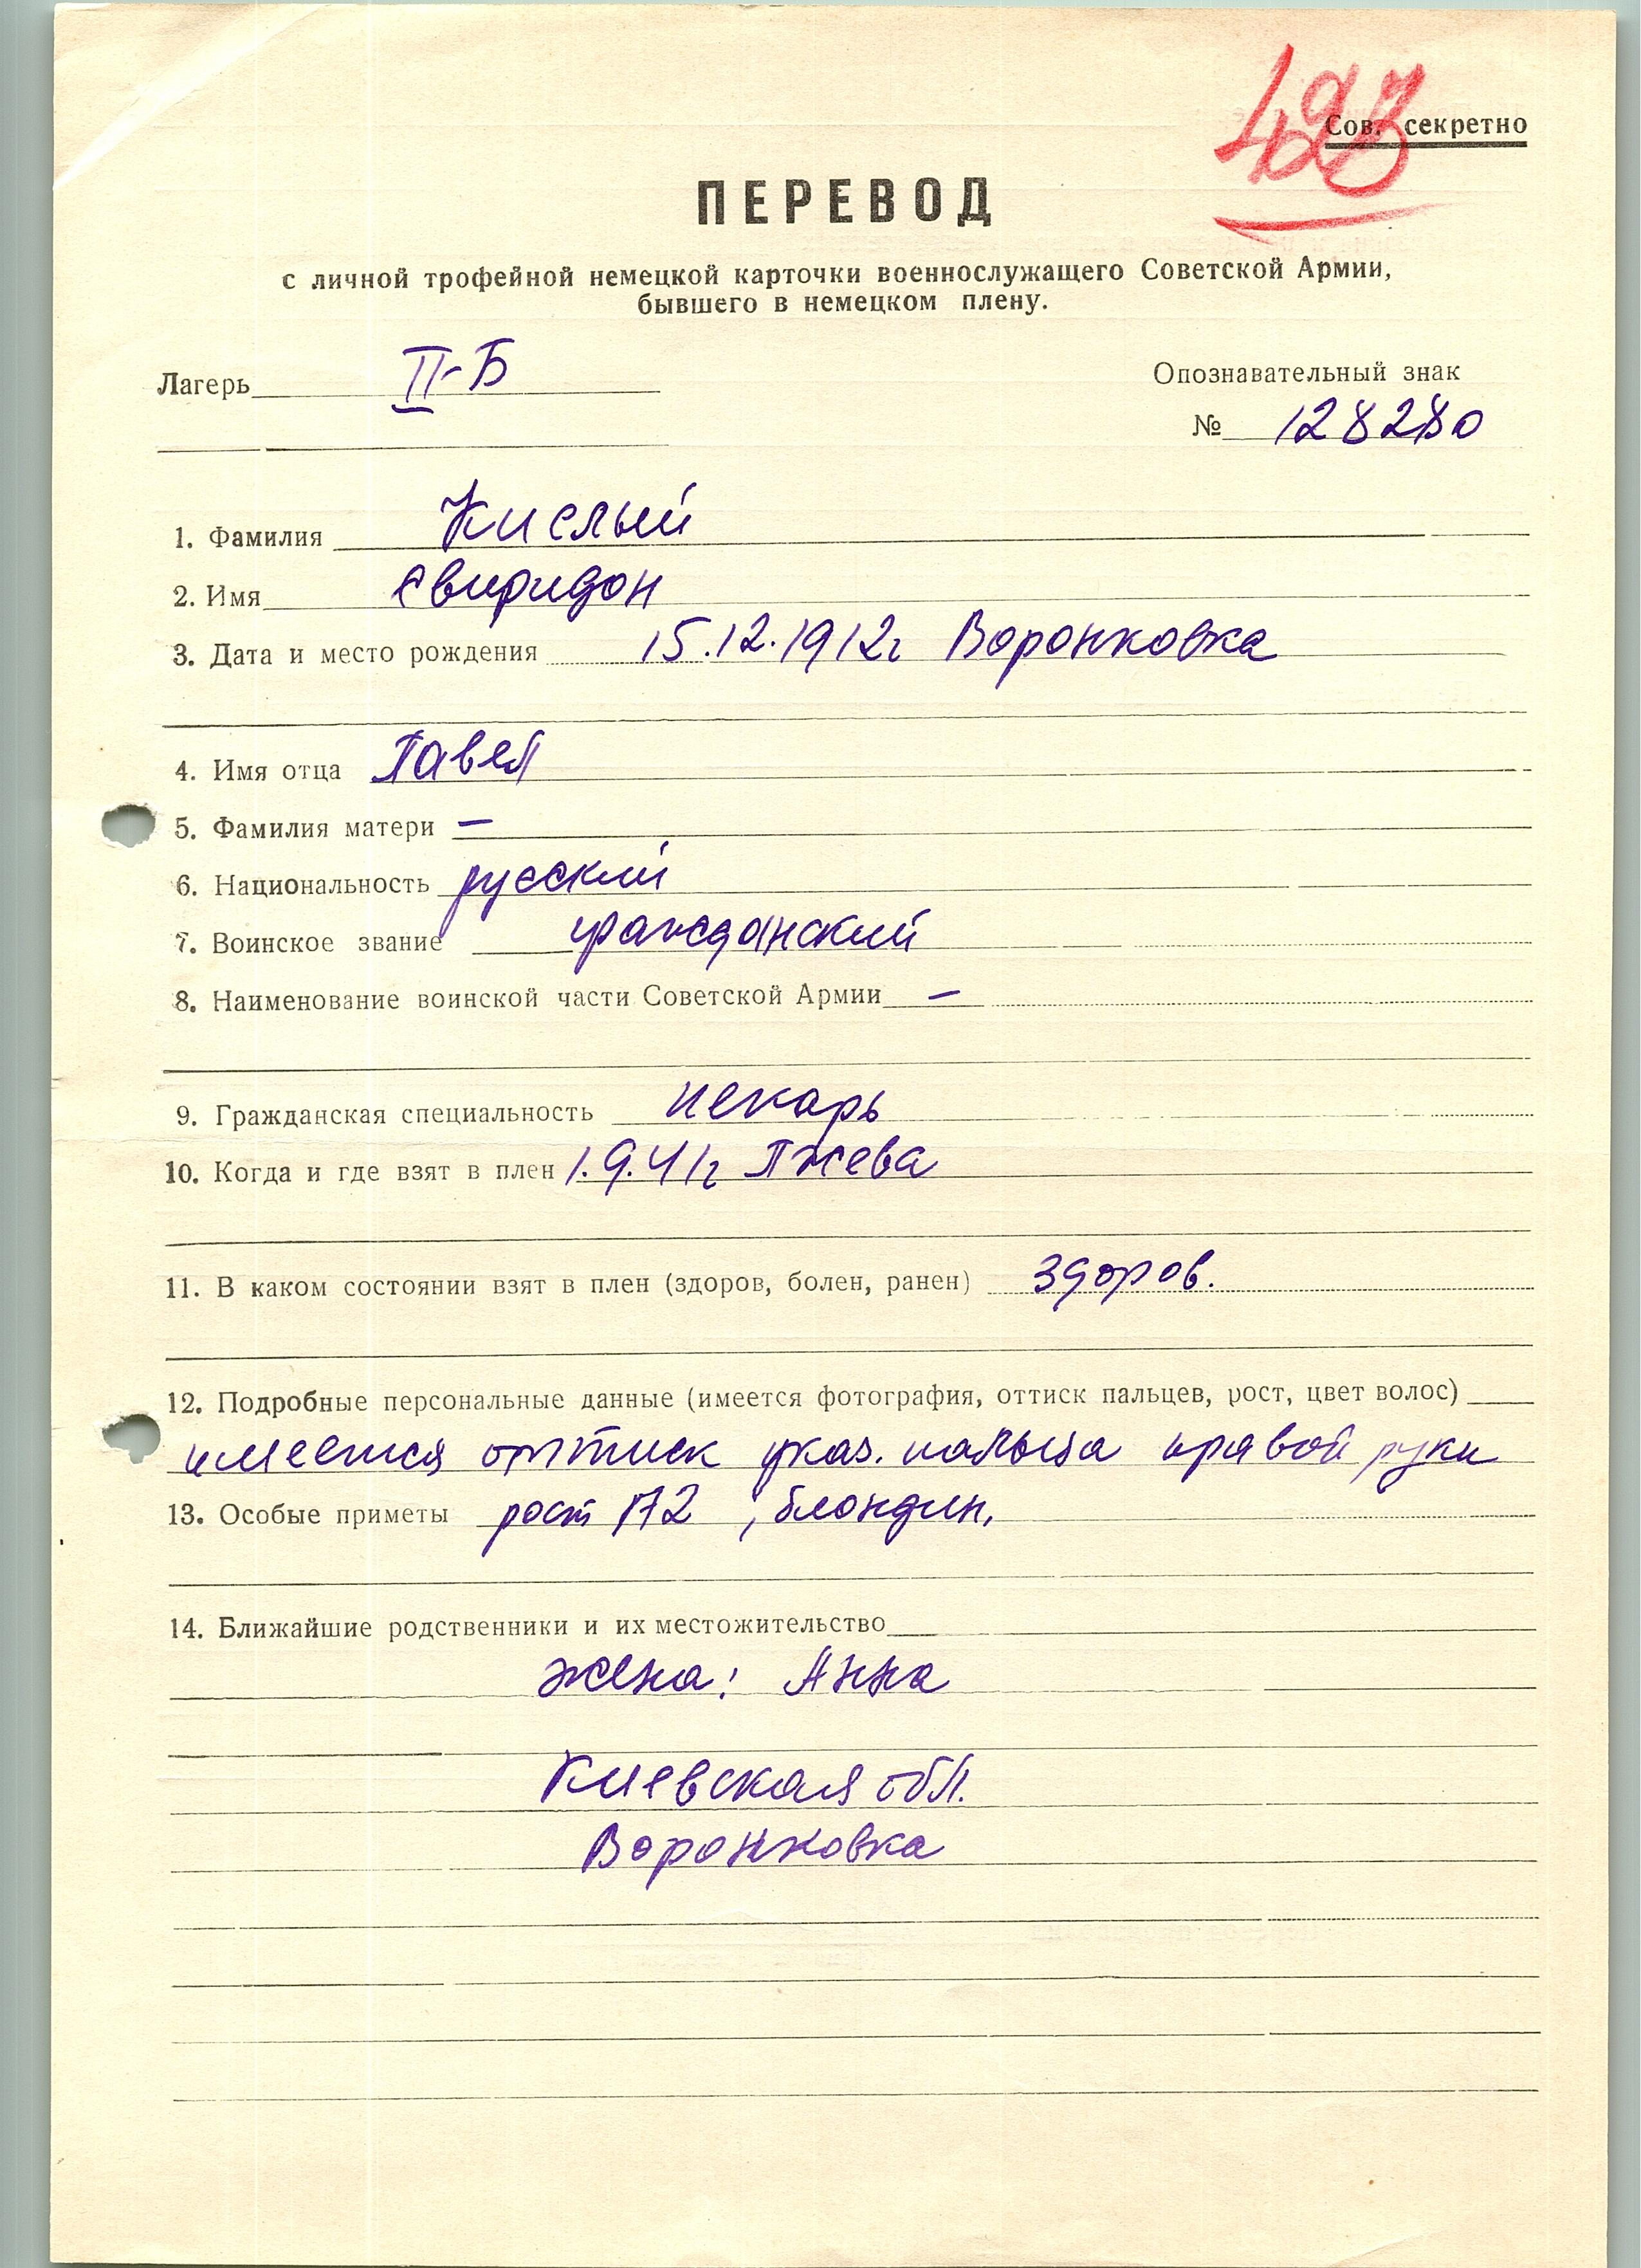 493
Сов. секретно
ПЕРЕВОД
с личной трофейной немецкой карточки военнослужащего Советской Армии,
бывшего в немецком плену.
Лагерь II-Б
Опознавательный знак
№ 128280
1. Фамилия Кислый
2. Имя Свиридон
3. Дата и место рождения 15.12.1912г Воронковка
4. Имя отца Павел
5. Фамилия матери –
6. Национальность русский
7. Воинское звание гражданский
8. Наименование воинской части Советской Армии –
9. Гражданская специальность пекарь
10. Когда и где взят в плен 1.9.41г Пжева
11. В каком состоянии взят в плен (здоров, болен, ранен) здоров.
12. Подробные персональные данные (имеется фотография, оттиск пальцев, рост, цвет волос)
имеется оттиск указ. пальца правой руки
13. Особые приметы рост 172, блондин.
14. Ближайшие родственники и их местожительство
жена: Анна
Киевская обл.
Воронковка